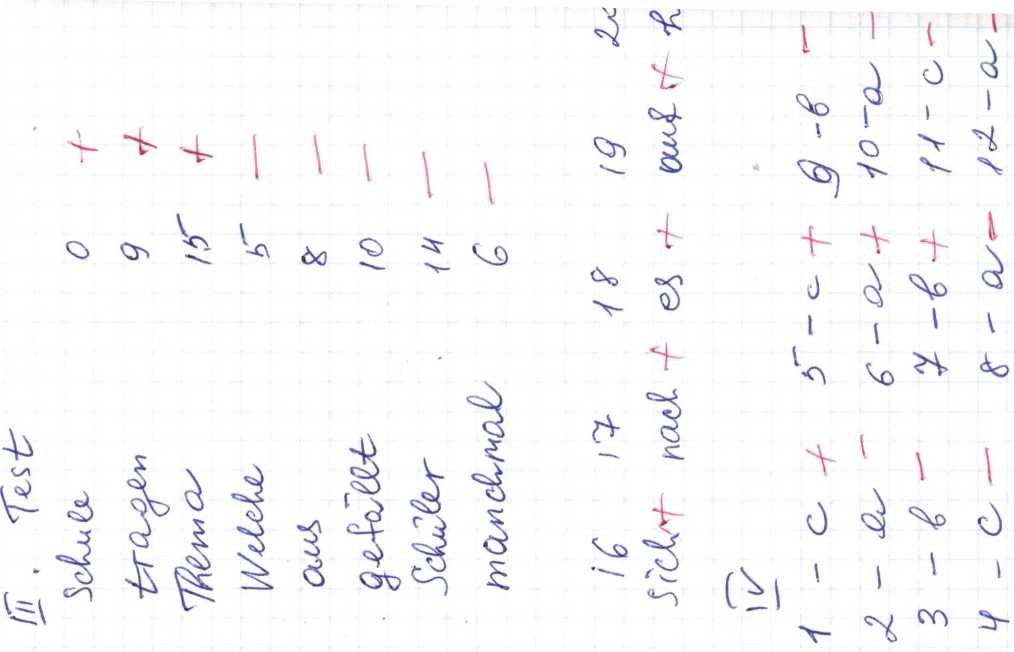 III. Test
Schule 0 +
tragen 9 +
Thema 15 +
Welche 5 —
aus 8 —
gefällt 10 —
Schüler 14 —
manchmal 6 —
16 17 18 19
sich + nach + es + auf +
IV
1 - c + 5 - c + 9 - b -
2 - a - 6 - a + 10 - a -
3 - b - 7 - b + 11 - c -
4 - c - 8 - a - 12 - a -